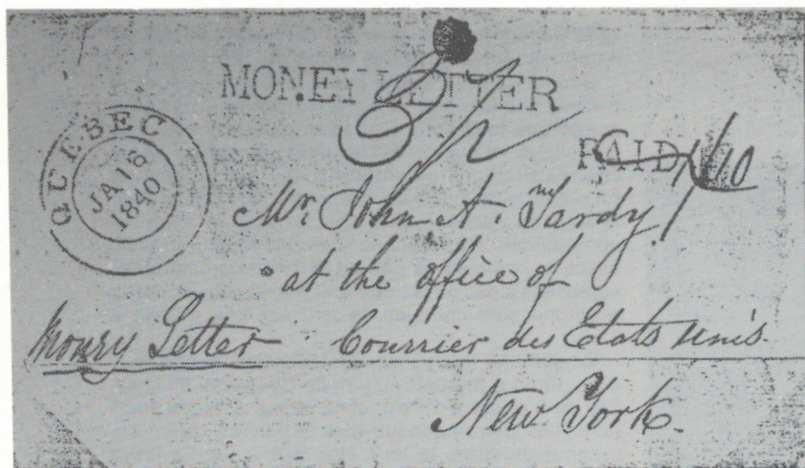 MONEY LETTER
QUEBEC
JA 18
1840
PAID 1/10
Mr. John A. Tardy
at the office of
Money Letter Courrier des Etats unis
New York.